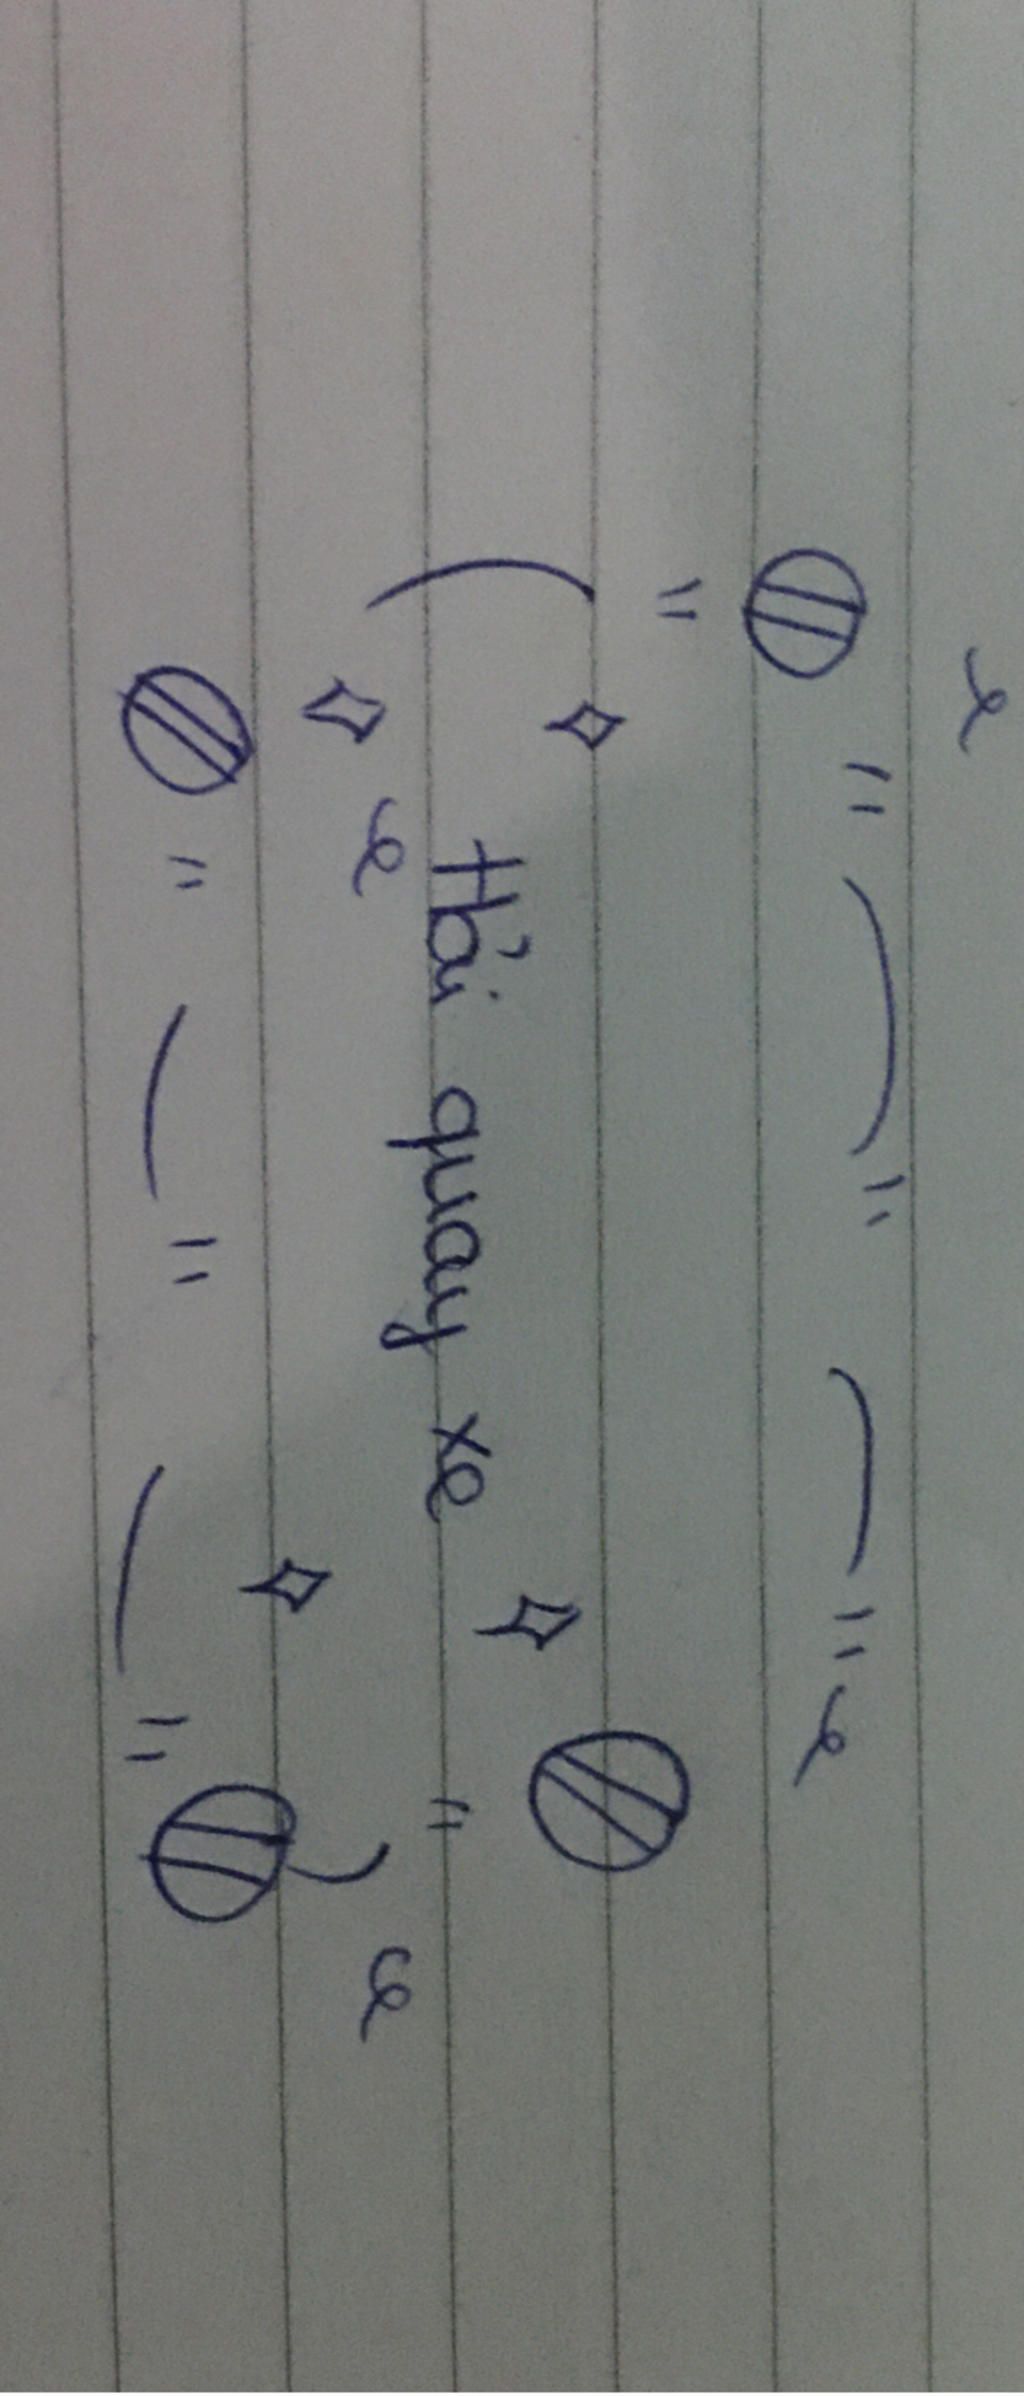 Hải quay xe